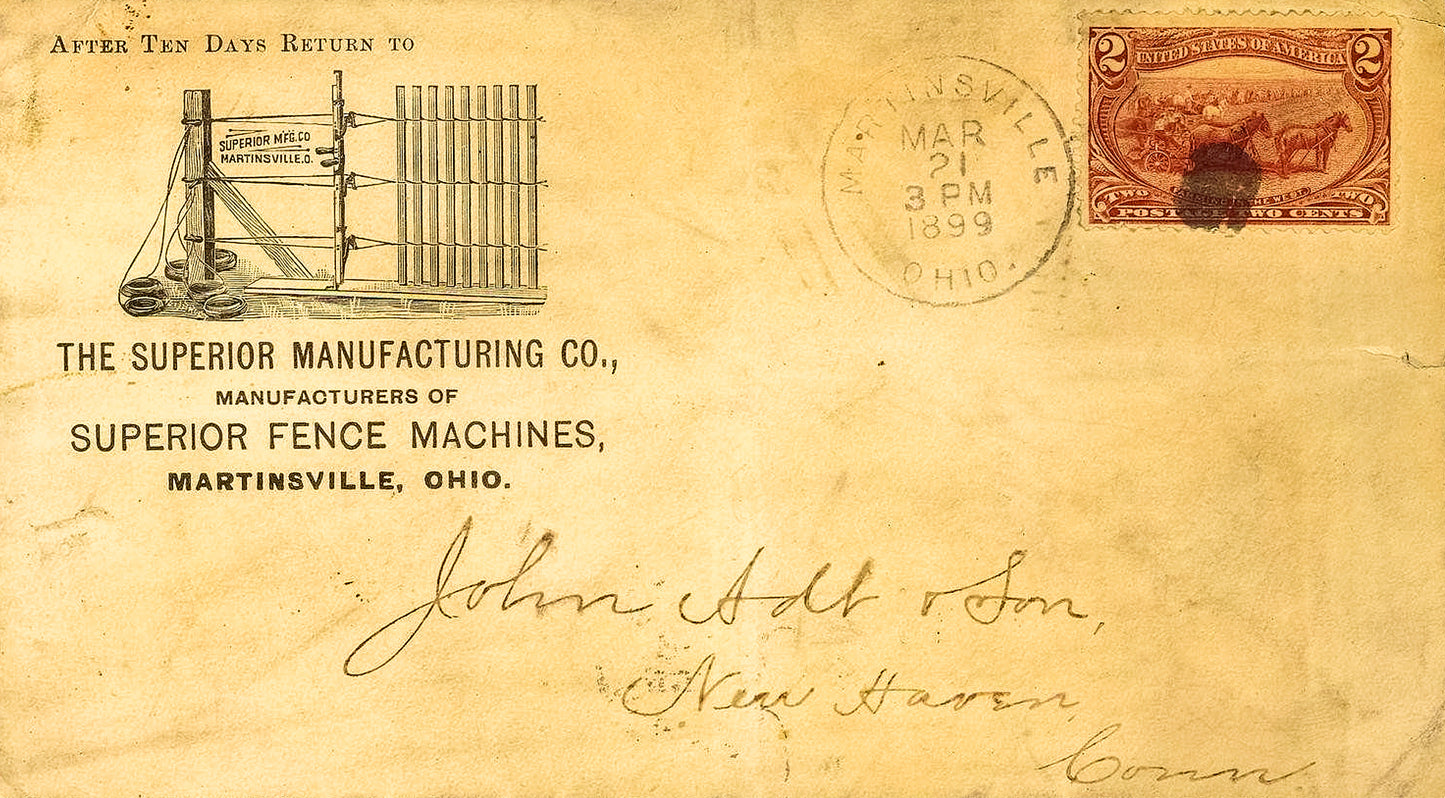 AFTER TEN DAYS RETURN TO
SUPERIOR M'F'G.CO
MARTINSVILLE.O.
THE SUPERIOR MANUFACTURING CO.,
MANUFACTURERS OF
SUPERIOR FENCE MACHINES,
MARTINSVILLE, OHIO.
MARTINSVILLE
MAR
21
3 PM
1899
OHIO.
2 UNITED STATES OF AMERICA 2
TWO TWO
POSTAGE TWO CENTS
John Adt & Son,
New Haven
Conn